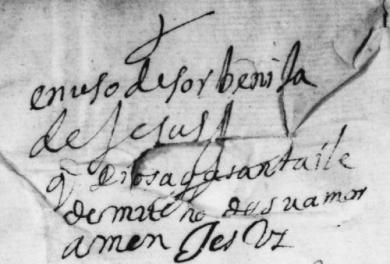 en uso de sor benita
de Jesus
q Dios aga santa i le
de mucho de su amor
amen Jes Vz